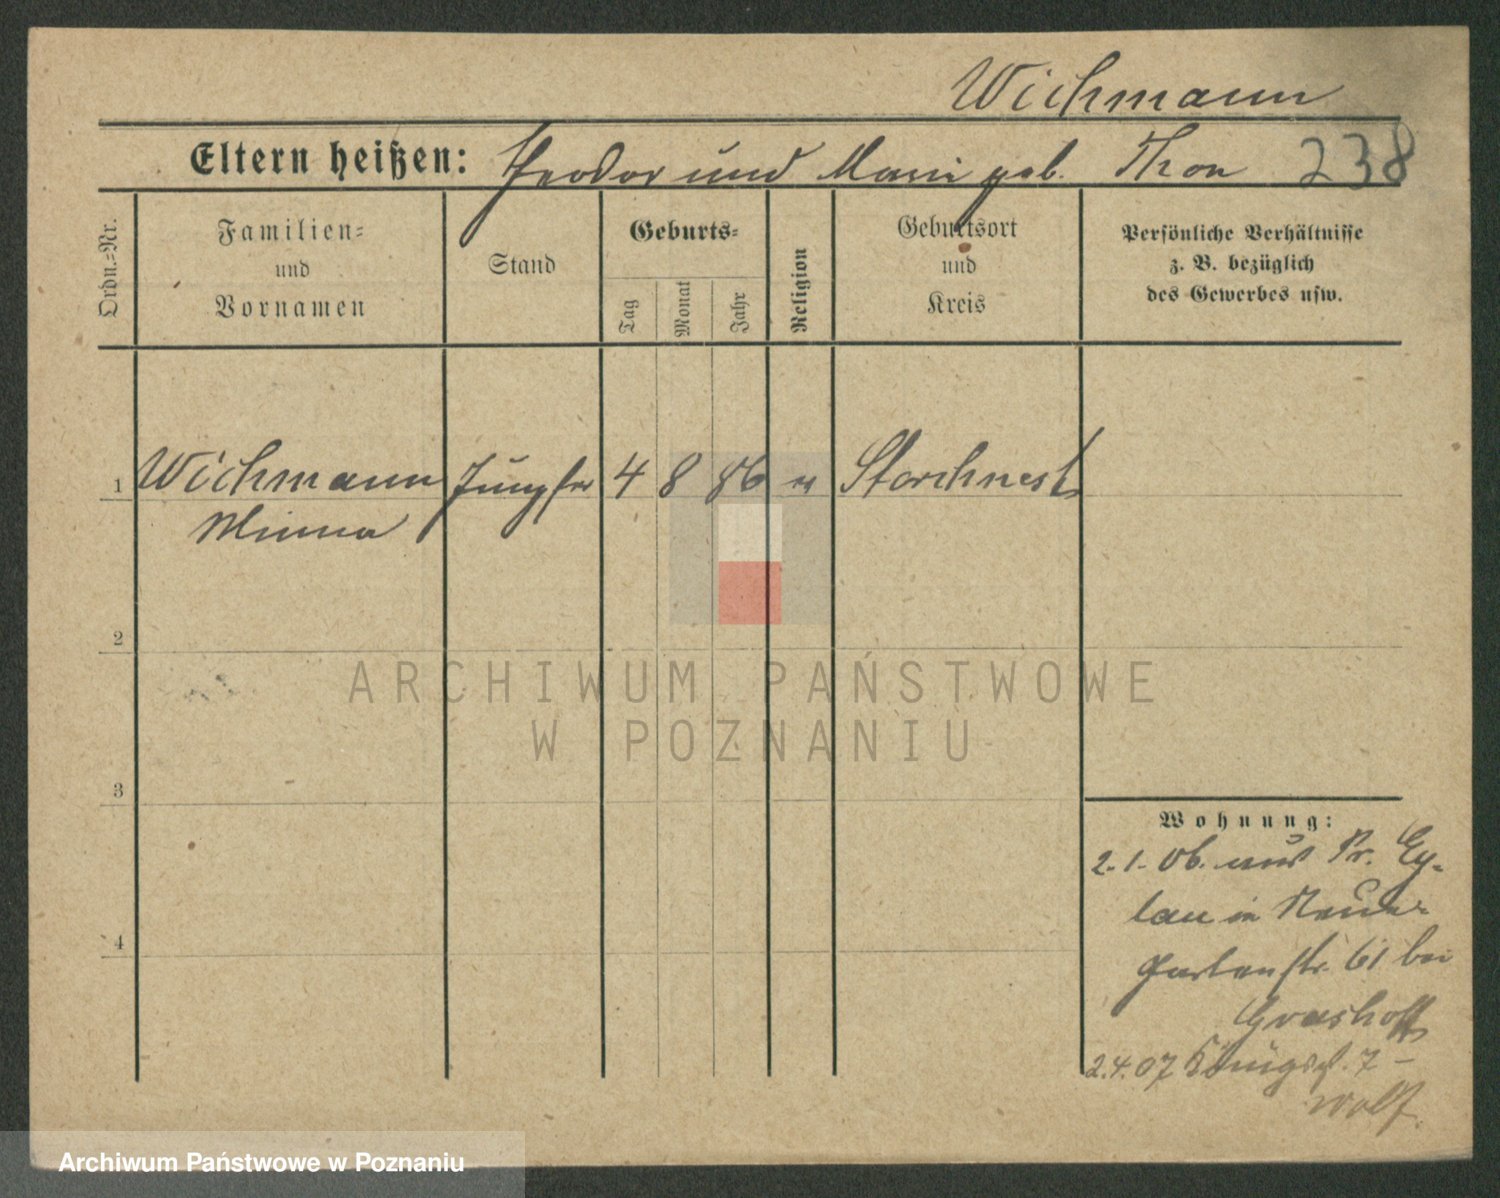 Wichmann
Eltern heißen: Theodor und Marie geb. Thon 238
Ordn.-Nr.
Familien-
und
Vornamen
Stand
Geburts-
Tag
Monat
Jahr
Religion
Geburtsort
und
Kreis
Persönliche Verhältnisse
z. B. bezüglich
des Gewerbes usw.
1 Wichmann Jungfer 4 8 86 Storchnest
Minna
2
3
4
Wohnung:
2.1.06. aus Pr. Ey-
lau in
Gartenstr. 61 bei
Grashoff
2.4.07 Königspl. 7 -
Wolf.
ARCHIWUM PAŃSTWOWE
W POZNANIU
Archiwum Państwowe w Poznaniu